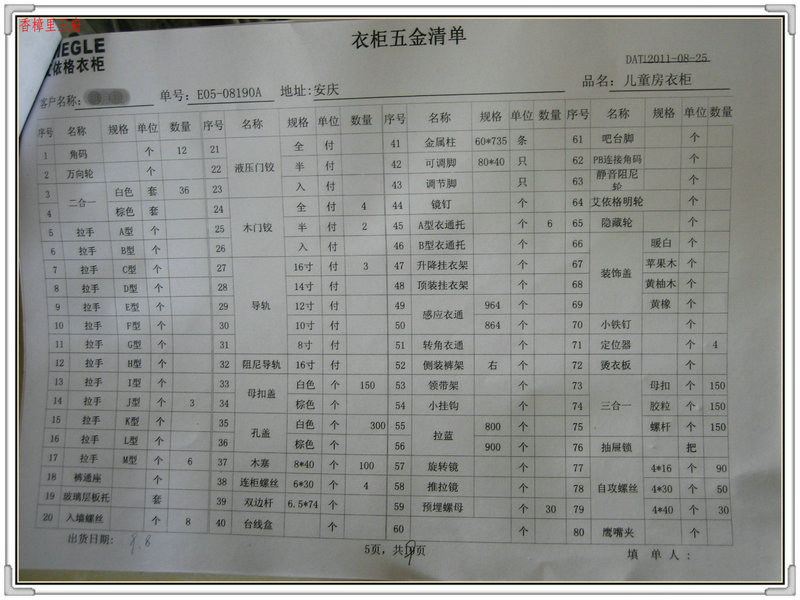 香樟里
衣柜五金清单
EGLE
依格衣柜
DATE2011-08-25
客户名称: 单号: E05-08190A 地址:安庆 品名: 儿童房衣柜
序号 名称 规格 单位 数量 序号 名称 规格 单位 数量 序号 名称 规格 单位 数量 序号 名称 规格 单位 数量
1 角码 个 12 21 液压门铰 全 付 41 金属柱 60*735 条 61 吧台脚 个
2 万向轮 个 22 半 付 42 可调脚 80*40 只 62 PB连接角码 个
3 二合一 白色 套 36 23 入 付 43 调节脚 只 63 静音阻尼轮 个
4 棕色 套 24 木门铰 全 付 4 44 镜钉 个 64 艾依格明轮 个
5 拉手 A型 个 25 半 付 2 45 A型衣通托 个 6 65 隐藏轮 个
6 拉手 B型 个 26 入 付 46 B型衣通托 个 66 装饰盖 暖白 个
7 拉手 C型 个 27 导轨 16寸 付 3 47 升降挂衣架 个 67 苹果木 个
8 拉手 D型 个 28 14寸 付 48 顶装挂衣架 个 68 黄柚木 个
9 拉手 E型 个 29 12寸 付 49 感应衣通 964 个 69 黄橡 个
10 拉手 F型 个 30 10寸 付 50 864 个 70 小铁钉 个
11 拉手 G型 个 31 8寸 付 51 转角衣通 个 71 定位器 个 4
12 拉手 H型 个 32 阻尼导轨 16寸 付 52 侧装裤架 右 个 72 烫衣板 个
13 拉手 I型 个 33 母扣盖 白色 个 150 53 领带架 个 73 三合一 母扣 个 150
14 拉手 J型 个 3 34 棕色 个 54 小挂钩 个 74 胶粒 个 150
15 拉手 K型 个 35 孔盖 白色 个 300 55 拉蓝 800 个 75 螺杆 个 150
16 拉手 L型 个 36 棕色 个 56 900 个 76 抽屉锁 把
17 拉手 M型 个 6 37 木塞 8*40 个 100 57 旋转镜 个 77 自攻螺丝 4*16 个 90
18 裤通座 个 38 连柜螺丝 6*30 个 4 58 推拉镜 个 78 4*30 个 50
19 玻璃层板托 套 39 双边杆 6.5*74 个 59 预埋螺母 个 30 79 4*40 个 30
20 入墙螺丝 个 8 40 台线盒 个 60 个 80 鹰嘴夹 个
出货日期: 5页, 共 页 填 单 人: